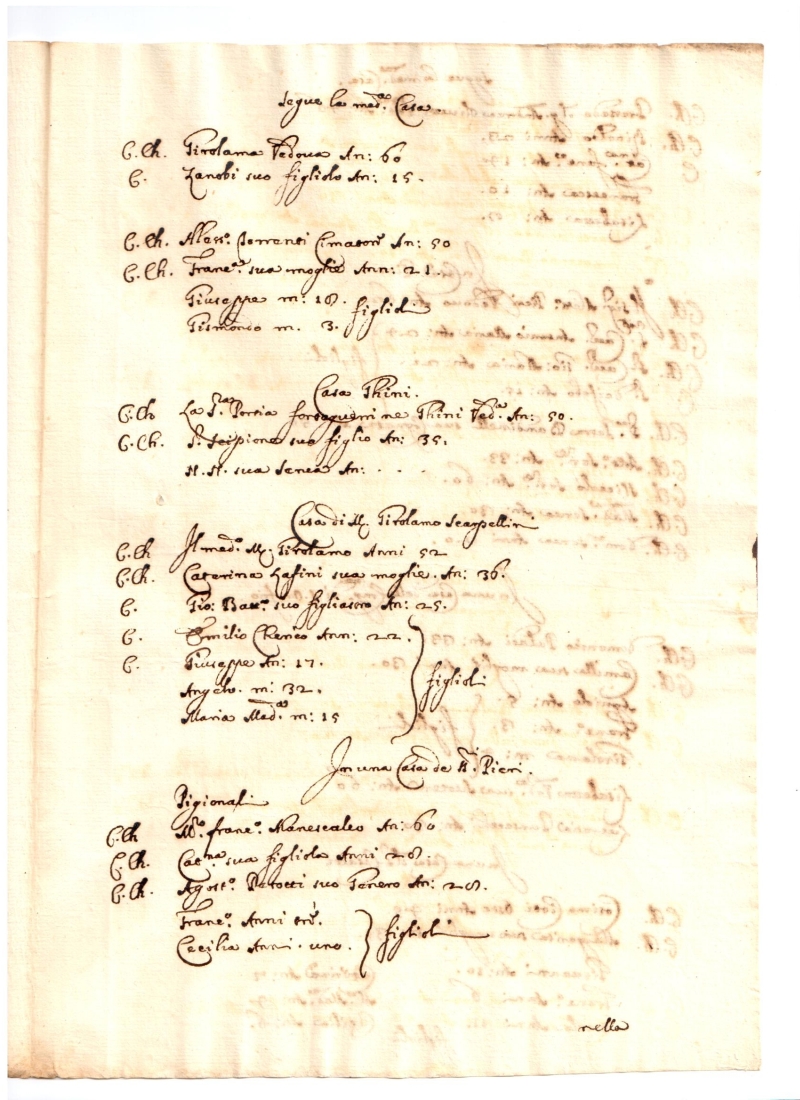 Segue la med.ma Casa
C. Ch. Girolama Vedova An: 60
C. Zanobi suo figliolo An: 15.
C. Ch. Aless.o Torrenti Cimatore An: 50
C. Ch. Franc.a sua moglie Ann: 21.
Giuseppe m: 18. figlioli
Gismondo m. 3.
Casa Ghini.
C. Ch La S.ra Porzia forteguerri ne Ghini Ved.a An: 50.
C. Ch. S. Scipione suo figlio An: 35.
N. N. sua Serva An: . . .
Casa di M. Girolamo Scarpellini
C. Ch Il med.o M. Girolamo Anni 52
C. Ch. Caterina sua moglie. An: 36.
C. Gio: Batt.a suo figliastro An: 25.
C. Emilio Cherico Ann: 22.
C. Giuseppe An: 17. figlioli
Angelo. m: 32.
Maria Mad.a m: 15
In una Casa de R.ti Pieri.
Pigionali
C. Ch M.o franc.o Manescalco An: 60
C. Ch. Cat.na sua figliola Anni 28.
C. Ch. Agost.o Petotti suo Genero An: 28.
Franc.o Anni tre. figlioli
Cecilia Anni. uno.
nella